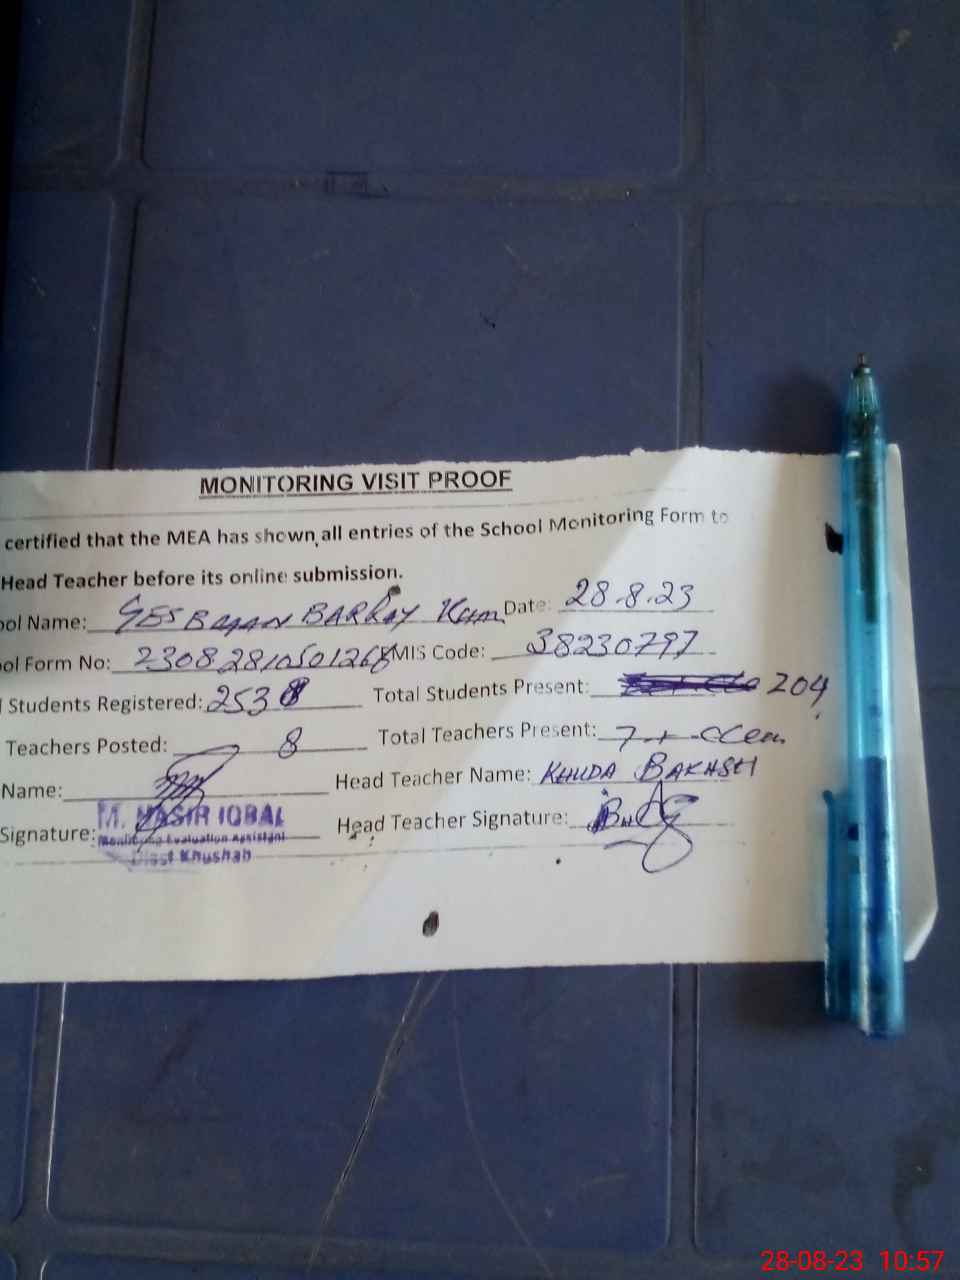 MONITORING VISIT PROOF
certified that the MEA has shown all entries of the School Monitoring Form to
Head Teacher before its online submission.
ool Name: BARRAY Date: 28.8.23
ool Form No: EMIS Code: 38230797
l Students Registered: 253 Total Students Present: 204
Teachers Posted: 8 Total Teachers Present: 7+
Name: Head Teacher Name: KHUDA BAKHSH
Signature: Head Teacher Signature:
M. NASIR IQBAL
Monitoring Evaluation Assistant
Distt Khushab
28-08-23 10:57